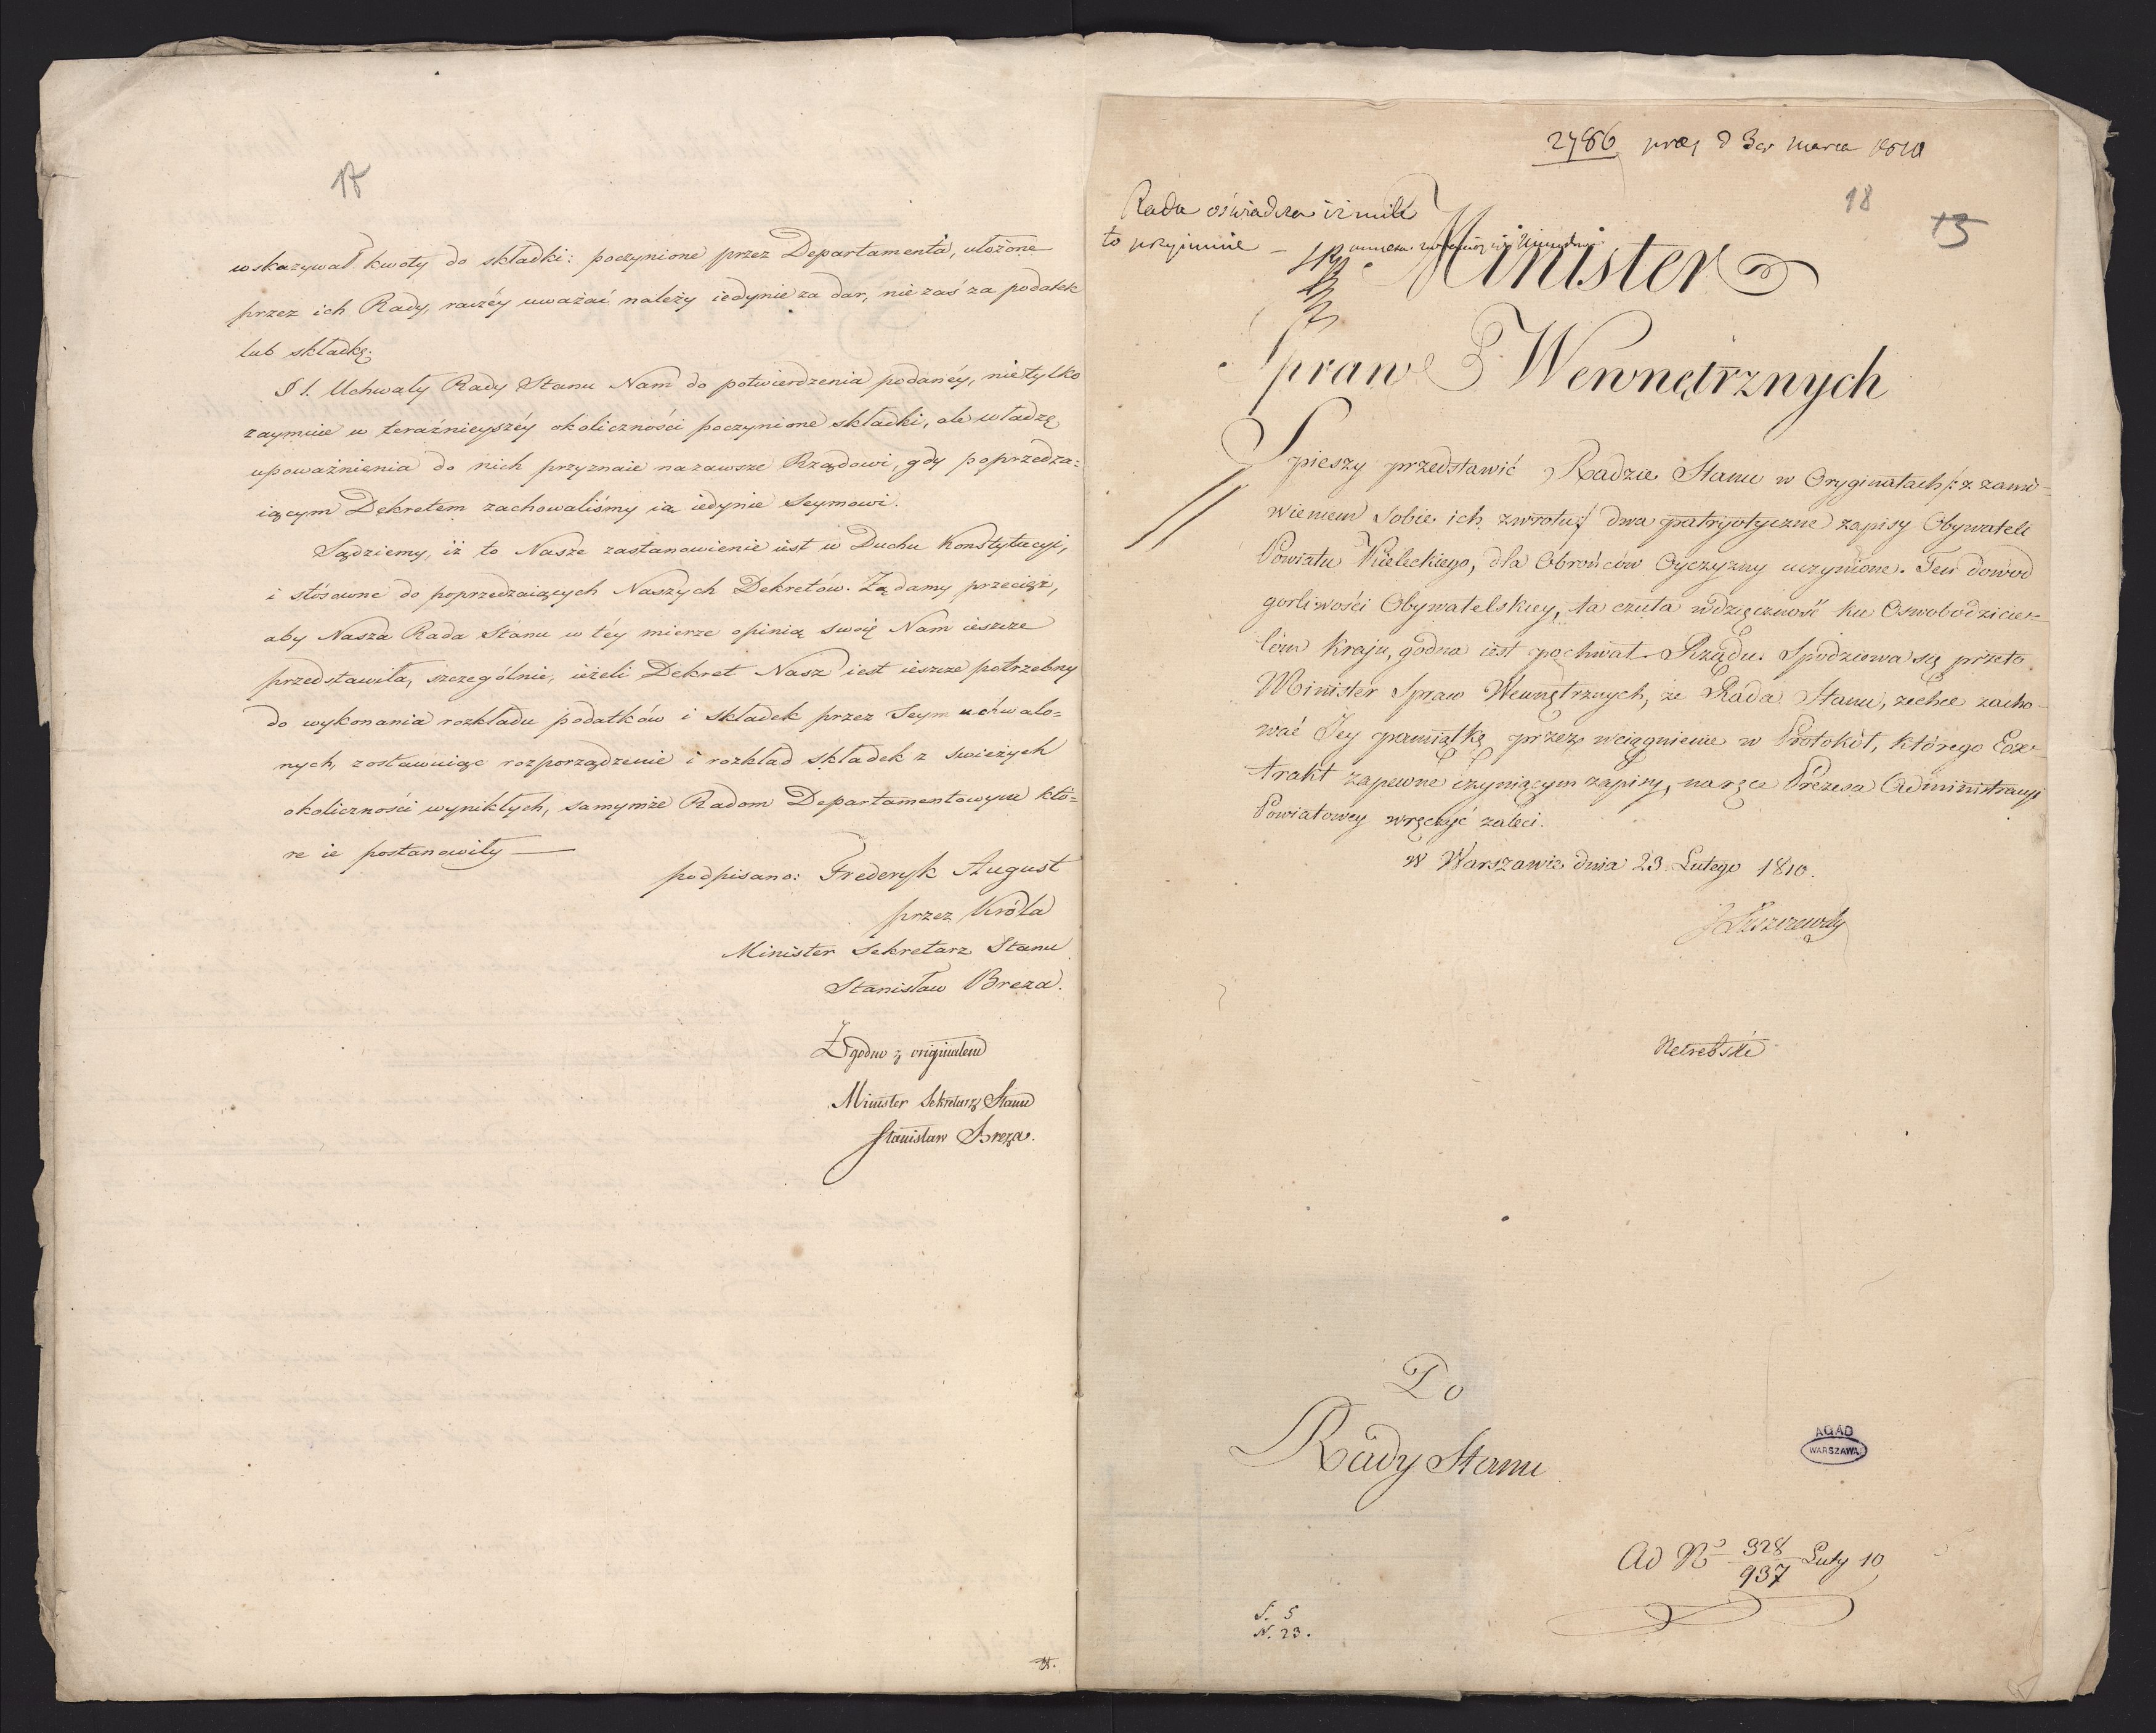 17
wskazywał kwoty do składki: poczynione przez Departamenta, ułożone
przez ich Rady, raczéy uważać należy iedynie za dar, nie zaś za podatek
lub składkę.
§ 1. Uchwały Rady Stanu Nam do potwierdzenia podanéy, nietylko
zaymuie w teraźnieyszéy okoliczności poczynione składki, ale władzę
upoważnienia do nich przyznaie nazawsze Rządowi, gdy poprzedza=
iącym Dekretem zachowaliśmy ią iedynie Seymowi.
Sądziemy, iż to Nasze zastanowienie iest w Duchu Konstytucyi,
i stósowne do poprzedzaiących Naszych Dekretów. Żądamy przecięż,
aby Nasza Rada Stanu w téy mierze opinią swoię Nam ieszcze
przedstawiła, szczególnie, ieżeli Dekret Nasz iest ieszcze potrzebny
do wykonania rozkładu podatków i składek przez Seym uchwalo=
nych, zostawuiąc rozporządzenie i rozkład składek z swieżych
okoliczności wynikłych, samymże Radom Departamentowym któ=
re ie postanowiły —
podpisano: Frederyk August
przez Króla
Minister Sekretarz Stanu
Stanisław Breza.
Zgodno z originałem
Minister Sekretarz Stanu
Stanisław Breza.
2786 prez d 3 Marca 1810
18
15
Rada oświadcza iż mile
to przyimuie –
Minister
Spraw Wewnętrznych
Spieszy przedstawić Radzie Stanu w Oryginałach /: z zamó-
wieniem sobie ich zwrotu :/ dwa patryotyczne zapisy Obywateli
Powiatu Kieleckiego, dla Obrońców Oyczyzny uczynione. Ten dowod
gorliwości Obywatelskiey, ta czuła wdzięczność ku Oswobodzicie-
lom Kraju, godna iest pochwał Rządu. Spodziewa się przeto
Minister Spraw Wewnętrznych, że Rada Stanu, zechce zacho-
wać Jey pamiątkę przez wciągnienie w Protokół, którego Ex-
trakt zapewne czyniącym zapisy, na ręce Prezesa Administracyi
Powiatowey wręczyć zaleci.
w Warszawie dnia 23. Lutego 1810.
J Łuszczewski
Netrebski
Do
Rady Stanu
AGAD
WARSZAWA
Ad No 328/937 Luty 10
S. 5
N. 23.